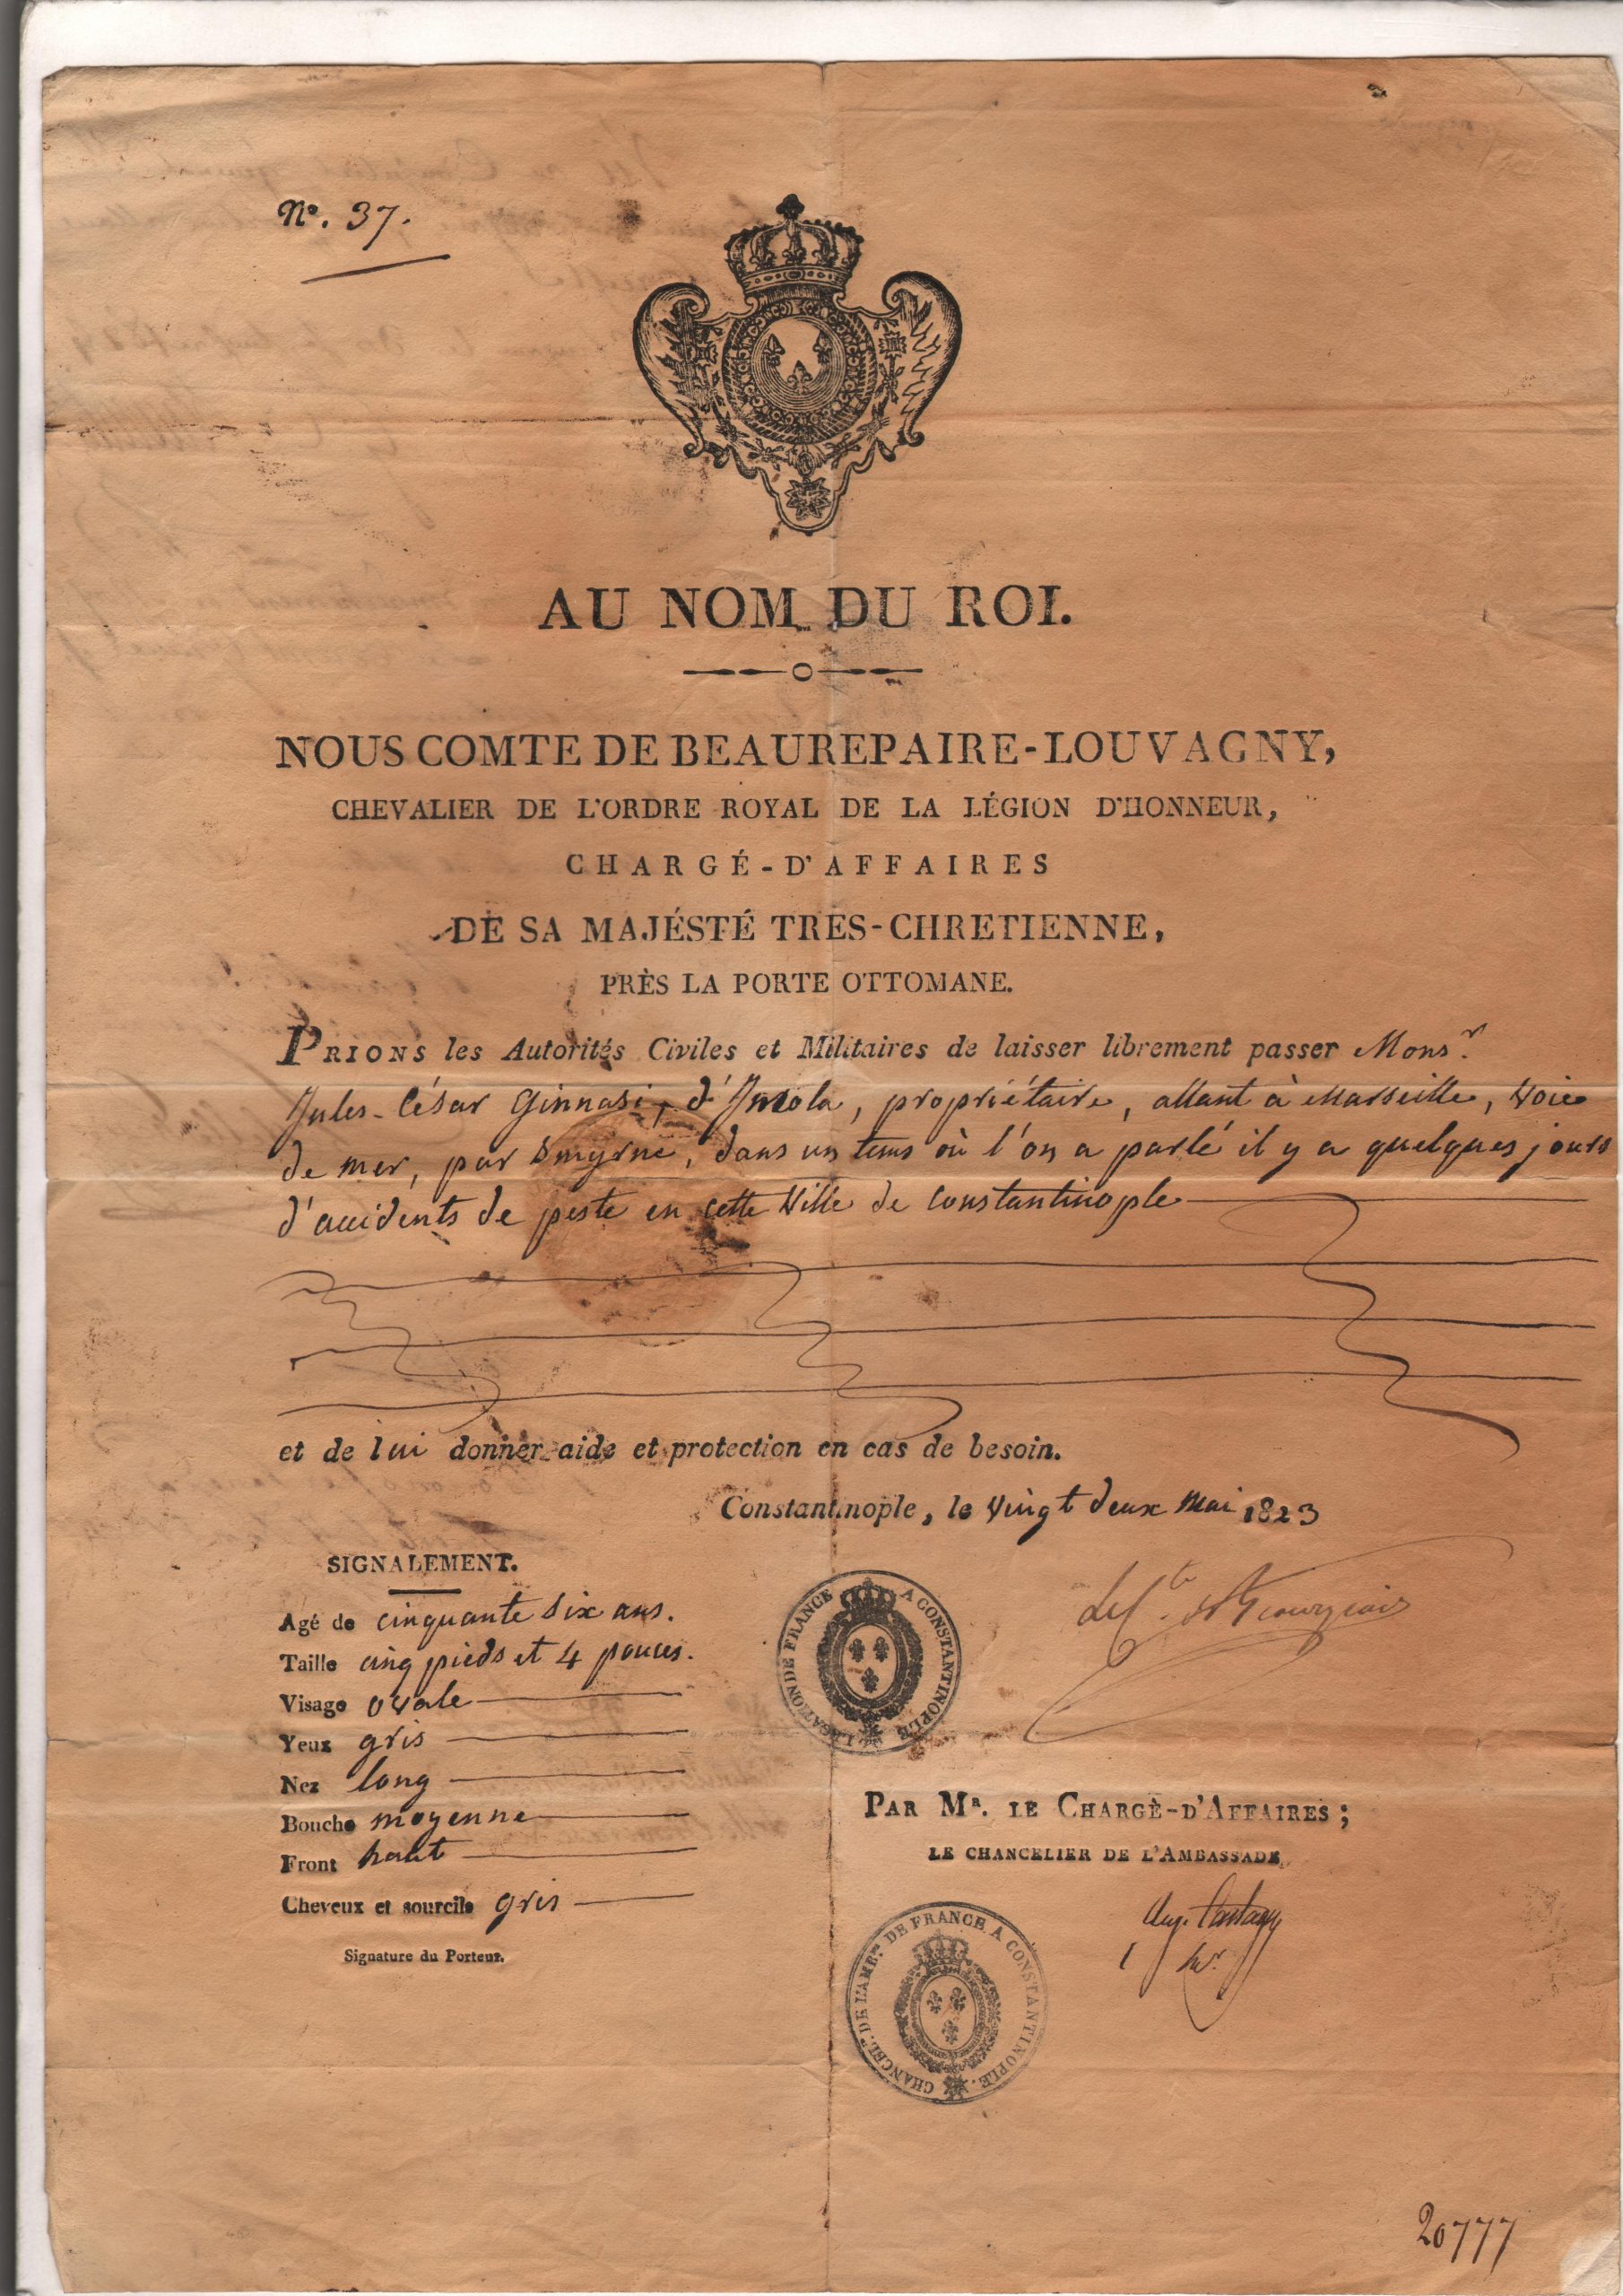 Nº. 37.
AU NOM DU ROI.
NOUS COMTE DE BEAUREPAIRE-LOUVAGNY,
CHEVALIER DE L'ORDRE ROYAL DE LA LÉGION D'HONNEUR,
CHARGÉ-D'AFFAIRES
DE SA MAJÉSTÉ TRES-CHRETIENNE,
PRÈS LA PORTE OTTOMANE.
PRIONS les Autorités Civiles et Militaires de laisser librement passer Monsr.
Jules-César Ginnasi, d'Imola, propriétaire, allant à Marseille, Voie
de mer, par Smyrne, dans un tems où l'on a parlé il y a quelques jours
d'accidents de peste en cette Ville de Constantinople
et de lui donner aide et protection en cas de besoin.
Constantinople, le Vingt deux Mai 1823
SIGNALEMENT.
Agé de cinquante six ans.
Taille cinq pieds et 4 pouces.
Visage ovale
Yeux gris
Nez long
Bouche moyenne
Front haut
Cheveux et sourcils gris
Signature du Porteur.
LEGATION DE FRANCE A CONSTANTINOPLE
PAR MR. LE CHARGÈ-D'AFFAIRES;
LE CHANCELIER DE L'AMBASSADE
CHANCELie. DE L'AMB.de DE FRANCE A CONSTANTINOPLE.
20777